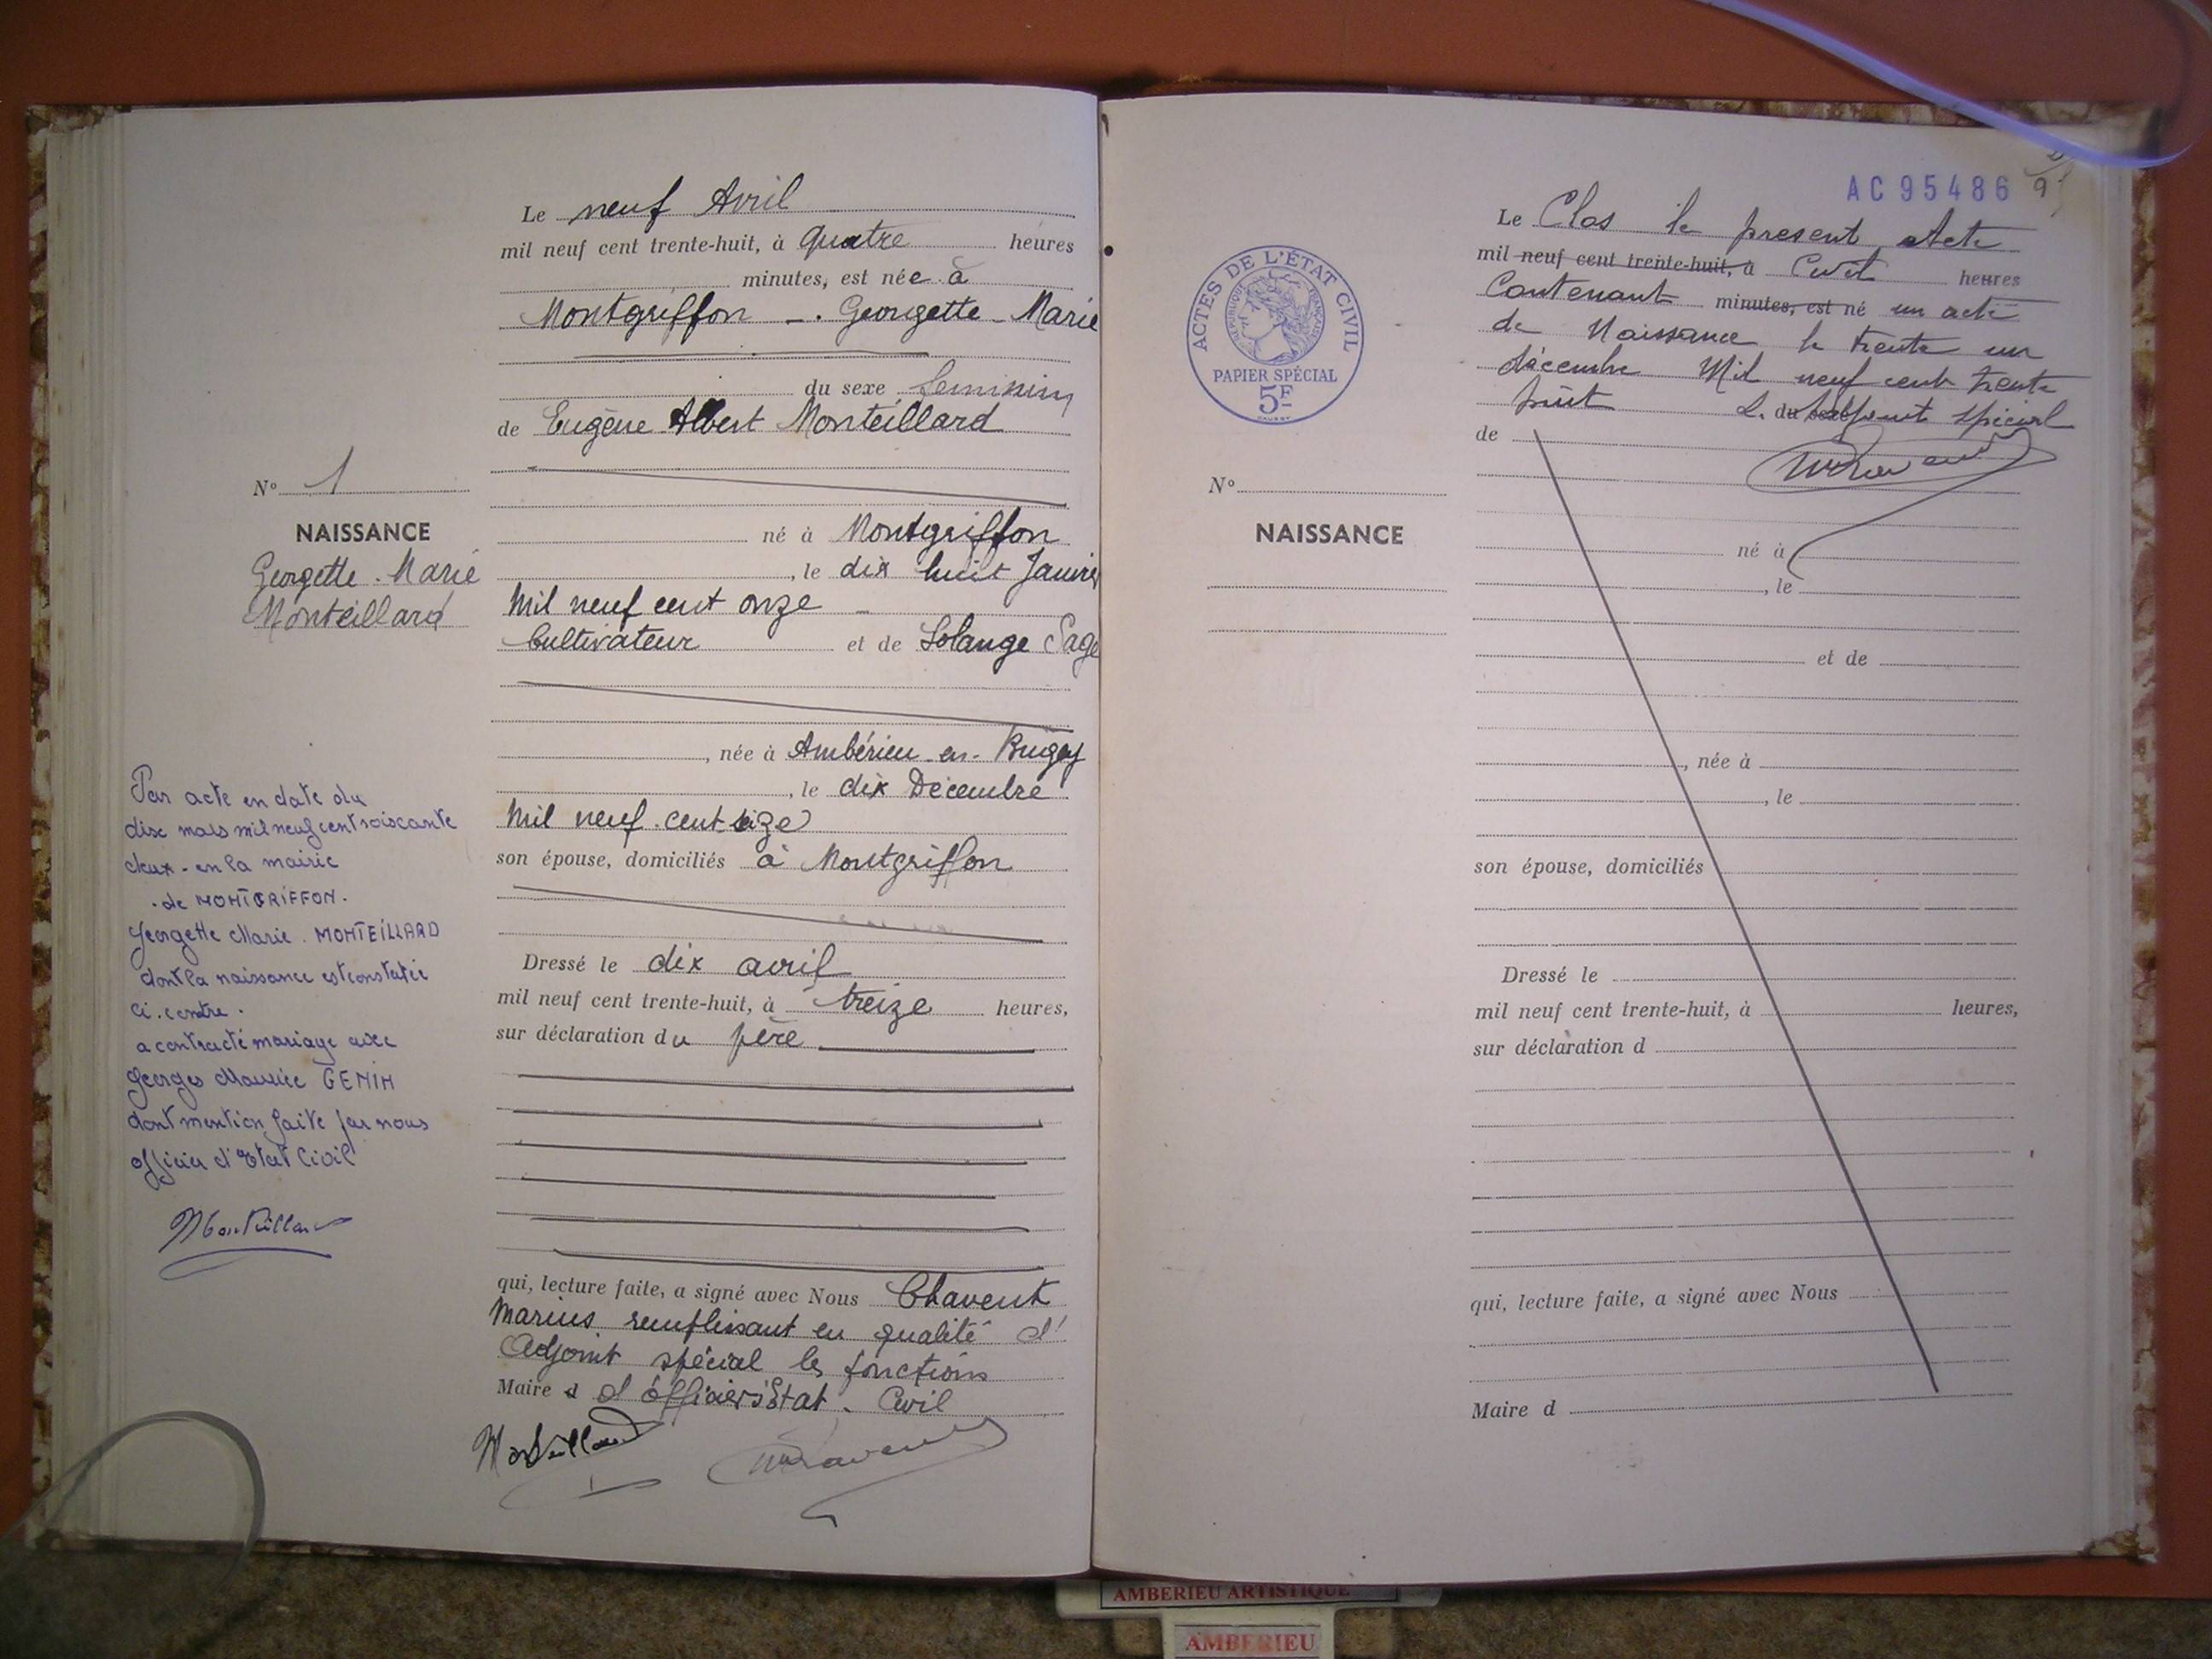 Le neuf Avril
mil neuf cent trente-huit, à quatre heures
minutes, est née à
Montgriffon -. Georgette - Marie
du sexe feminin
de Eugène Albert Monteillard
né à Montgriffon
, le dix huit Janvier
Mil neuf cent onze -
Cultivateur et de Solange Sage
, née à Ambérieu-en-Bugey
, le dix Décembre
Mil neuf cent seize
son épouse, domiciliés à Montgriffon
Dressé le dix avril
mil neuf cent trente-huit, à treize heures,
sur déclaration du père
qui, lecture faite, a signé avec Nous Chavent
Marius remplissant en qualité d'
Adjoint spécial les fonctions
Maire d d'officier d'Etat. Civil
Monteillard
N° 1
NAISSANCE
Georgette. Marie
Monteillard
Par acte en date du
dix mars mil neuf cent soixante
deux - en la mairie
- de MONTGRIFFON -
Georgette Marie. MONTEILLARD
dont la naissance est constatée
ci. contre.
a contracté mariage avec
Georges Maurice GENIN
dont mention faite par nous
officier d'Etat Civil
Monteillard
AC 95486
9
ACTES DE L'ÉTAT CIVIL
RÉPUBLIQUE FRANÇAISE
PAPIER SPÉCIAL
5F
N°
NAISSANCE
Le Clos le present Acte
mil neuf cent trente-huit, à Civil heures
Contenant minutes, est né un acte
de Naissance le trente un
décembre Mil neuf cent trente
huit L. du sexe Adjoint spécial
de
né à
, le
et de
, née à
, le
son épouse, domiciliés
Dressé le
mil neuf cent trente-huit, à heures,
sur déclaration d
qui, lecture faite, a signé avec Nous
Maire d
AMBERIEU ARTISTIQUE
AMBERIEU